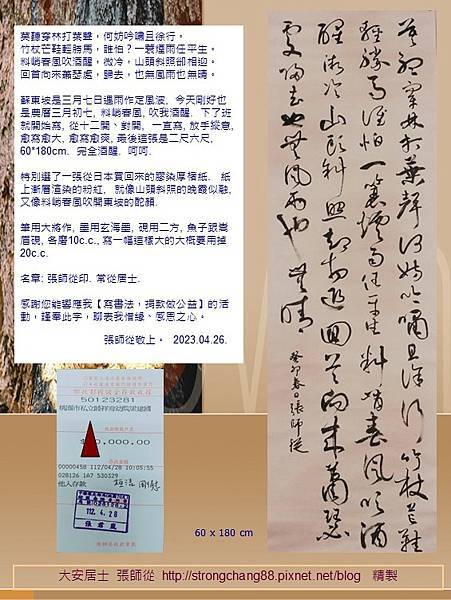 莫聽穿林打葉聲,何妨吟嘯且徐行。
竹杖芒鞋輕勝馬,誰怕?一蓑煙雨任平生。
料峭春風吹酒醒,微冷,山頭斜照卻相迎。
回首向來蕭瑟處,歸去,也無風雨也無晴。
蘇東坡是三月七日遇雨作定風波, 今天剛好也
是農曆三月初七, 料峭春風, 吹我酒醒, 下了班
就開始寫, 從十二開、對開, 一直寫, 放手縱意,
愈寫愈大, 愈寫愈爽, 最後這張是二尺六尺,
60*180cm. 完全酒醒, 呵呵.
特別選了一張從日本買回來的膠染厚楮紙, 紙
上漸層渲染的粉紅, 就像山頭斜照的晚霞似融,
又像料峭春風吹開東坡的酡顏.
筆用大將作, 墨用玄海墨, 硯用二方, 魚子跟鸞
眉硯, 各磨10c.c., 寫一幅這樣大的大概要用掉
20c.c.
名章: 張師從印. 常從居士.
感謝您能響應我【寫書法,捐款做公益】的活
動,謹奉此字,聊表我惜緣、感恩之心。
張師從敬上。 2023.04.26.
莫聽穿林打葉聲何妨吟嘯且徐行竹杖芒鞋
輕勝馬誰怕一蓑煙雨任平生料峭春風吹酒
醒微冷山頭斜照卻相迎回首向來蕭瑟
處歸去也無風雨也無晴
癸卯春日張師從
50123281
0,000.00
00000458 112/04/28 10:05:55
028126 1A7 530329
他人存款
112. 4. 28
60 x 180 cm
大安居士 張師從 http://strongchang88.pixnet.net/blog 精製